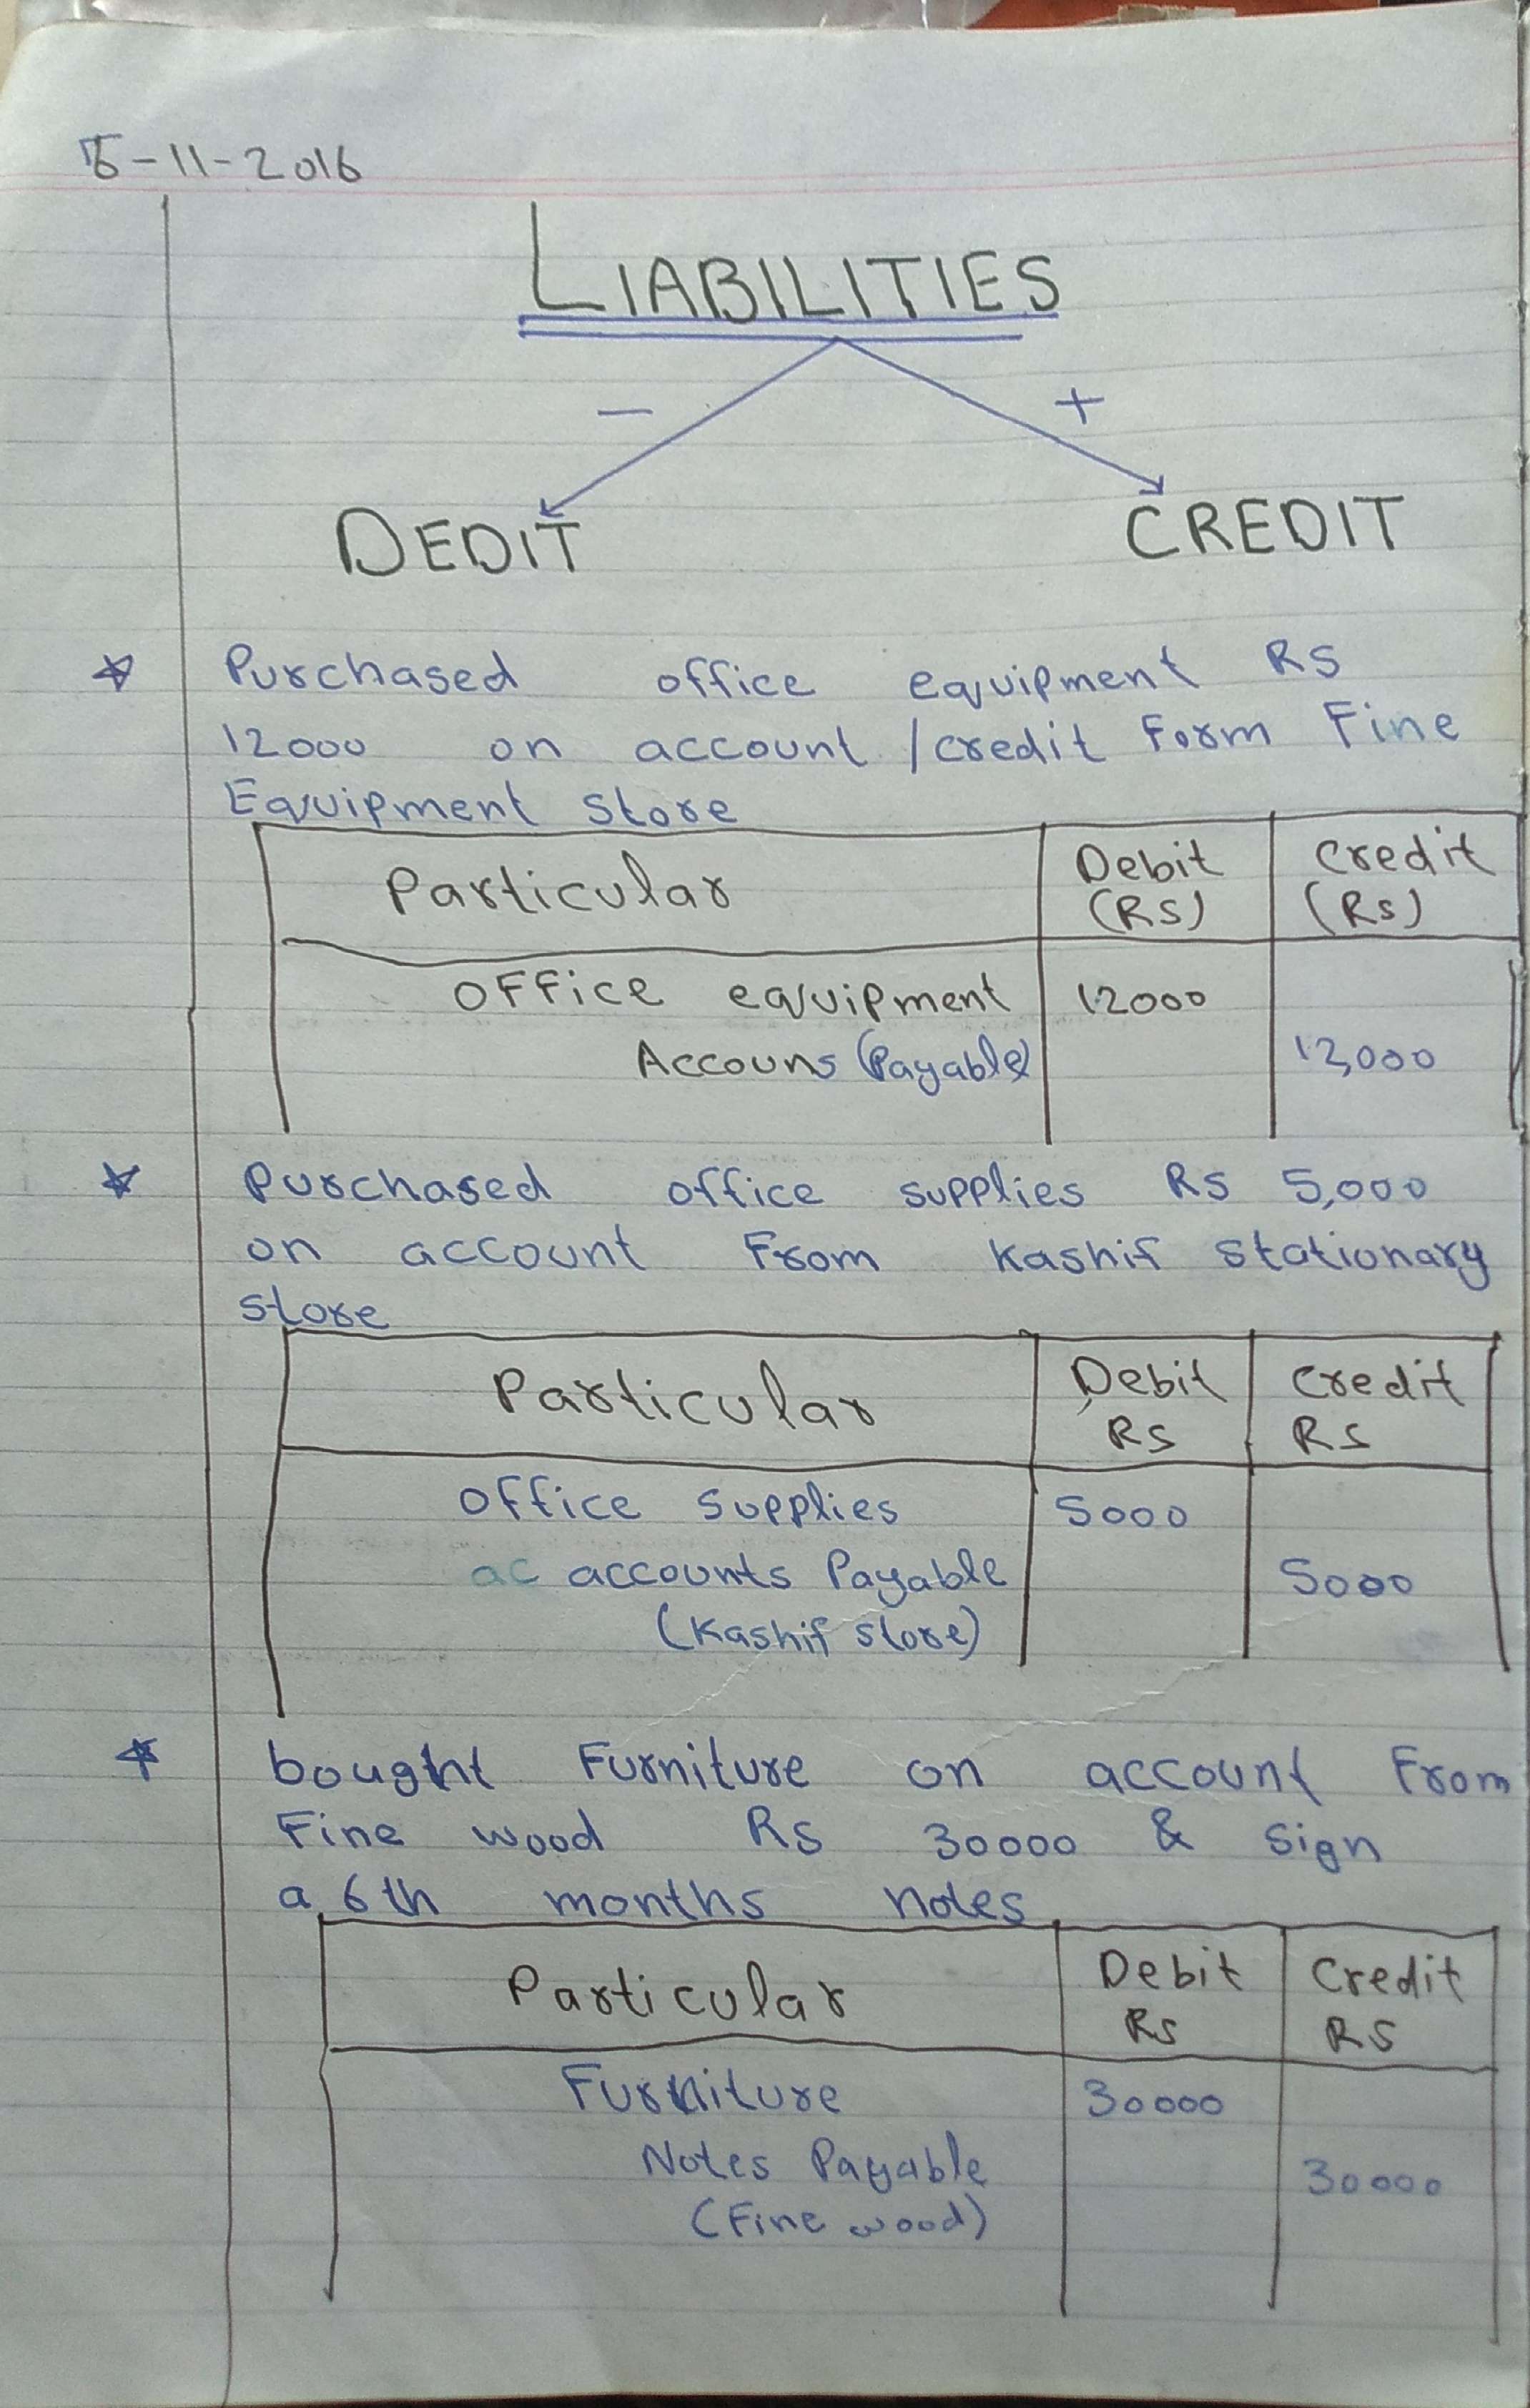 -11-2016
LIABILITIES
- +
DEDIT CREDIT
Purchased office equipment RS
12000 on account /credit Form Fine
Equipment store
Particular Debit (RS) Credit (Rs)
office equipment 12000
Accouns (Payable) 12,000
Purchased office supplies Rs 5,000
on account From Kashif stationary
store
Particular Debit RS Credit RS
office supplies 5000
ac accounts Payable 5000
(Kashif store)
bought Furniture on account From
Fine wood Rs 30000 & sign
a 6th months notes
Particular Debit Rs Credit RS
Furniture 30000
Notes Payable 30000
(Fine wood)